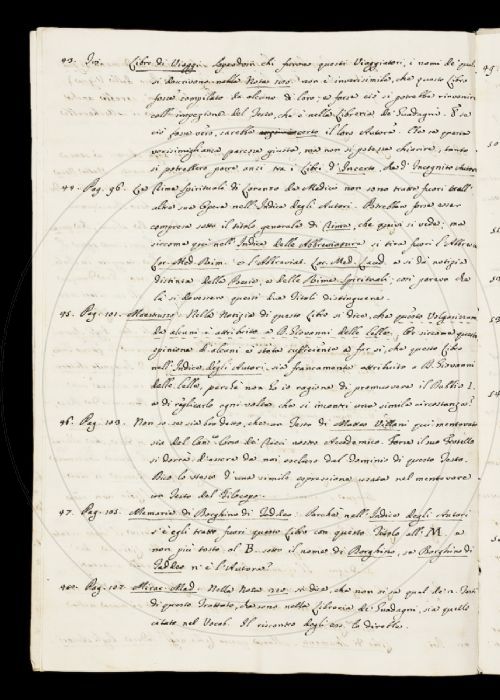 43. Ivi. Libro di Viaggi. Sapendosi chi furono questi Viaggiatori, i nomi de' quali
si descrivono nella Nota 100. non è inverisimile, che questo Libro
fosse compilato da alcuno di loro; e forse ciò si potrebbe rinvenire
coll' inspezione del Testo, che è nella Libreria de' Guadagni. E se
ciò fosse vero, sarebbe il loro Autore. Che se questa
verisimiglianza paresse giusta, ma non si potesse chiarire, tanto
si potrebbero porre anzi tra i Libri d' Incerto, che d' Incognito Autore
44. Pag. 96. Le Rime Spirituali di Lorenzo de Medici non sono tratte fuori dall'
altre sue Opere nell' Indice degli Autori. Potrebbon forse esser
comprese sotto il titolo generale di Rime, che quivi si vede; ma
siccome poi nell' Indice delle Abbreviature si tira fuori l' Abbrev.
Lor. Med. Rim. e l' Abbreviat. Lor. Med. Laud. e si dà notizia
distinta delle Poesie, e delle Rime Spirituali; così pareva che
là si dovessero questi due Titoli distinguere.
45. Pag. 101. Maestruzzo. Nella Notizia di questo Libro si dice, che questo Volgarizzam.
da alcuni è attribuito a D. Giovanni delle Celle. Or siccome questa
opinione d' alcuni è stata sufficiente a far sì, che questo Libro
nell' Indice degli Autori, sia francamente attribuito a D. Giovanni
delle Celle, perchè non ho io ragione di promuovere il Dubbio I.
e di ripigliarlo ogni volta che si incontri una simile circostanza?
46. Pag. 103. Non so se sia bordesso, che un Testo di Matteo Villani qui mentovato
sia del Can.co Cino de' Ricci nostro Accademico. Forse il suo Fratello
si dorrà d' essere da noi escluso dal Dominio di questo Testo.
Dico lo stesso d' una simile espressione usata nel mentovare
un Testo del Filocopo.
47. Pag. 105. Memorie di Borghino di Taddeo. Perchè nell' Indice degli Autori
s' è egli tratto fuori questo Libro con questo Titolo all' M. e
non più tosto al B. sotto il nome di Borghino, se Borghino di
Taddeo n' è l' Autore?
48. Pag. 107. Mirac. Mad. Nella Nota 210. si dice, che non si sa qual de' 2. Testi
di questo Trattato, che sono nella Libreria de' Guadagni, sia quello
citato nel Vocab. Il riscontro degli es. lo direbbe.